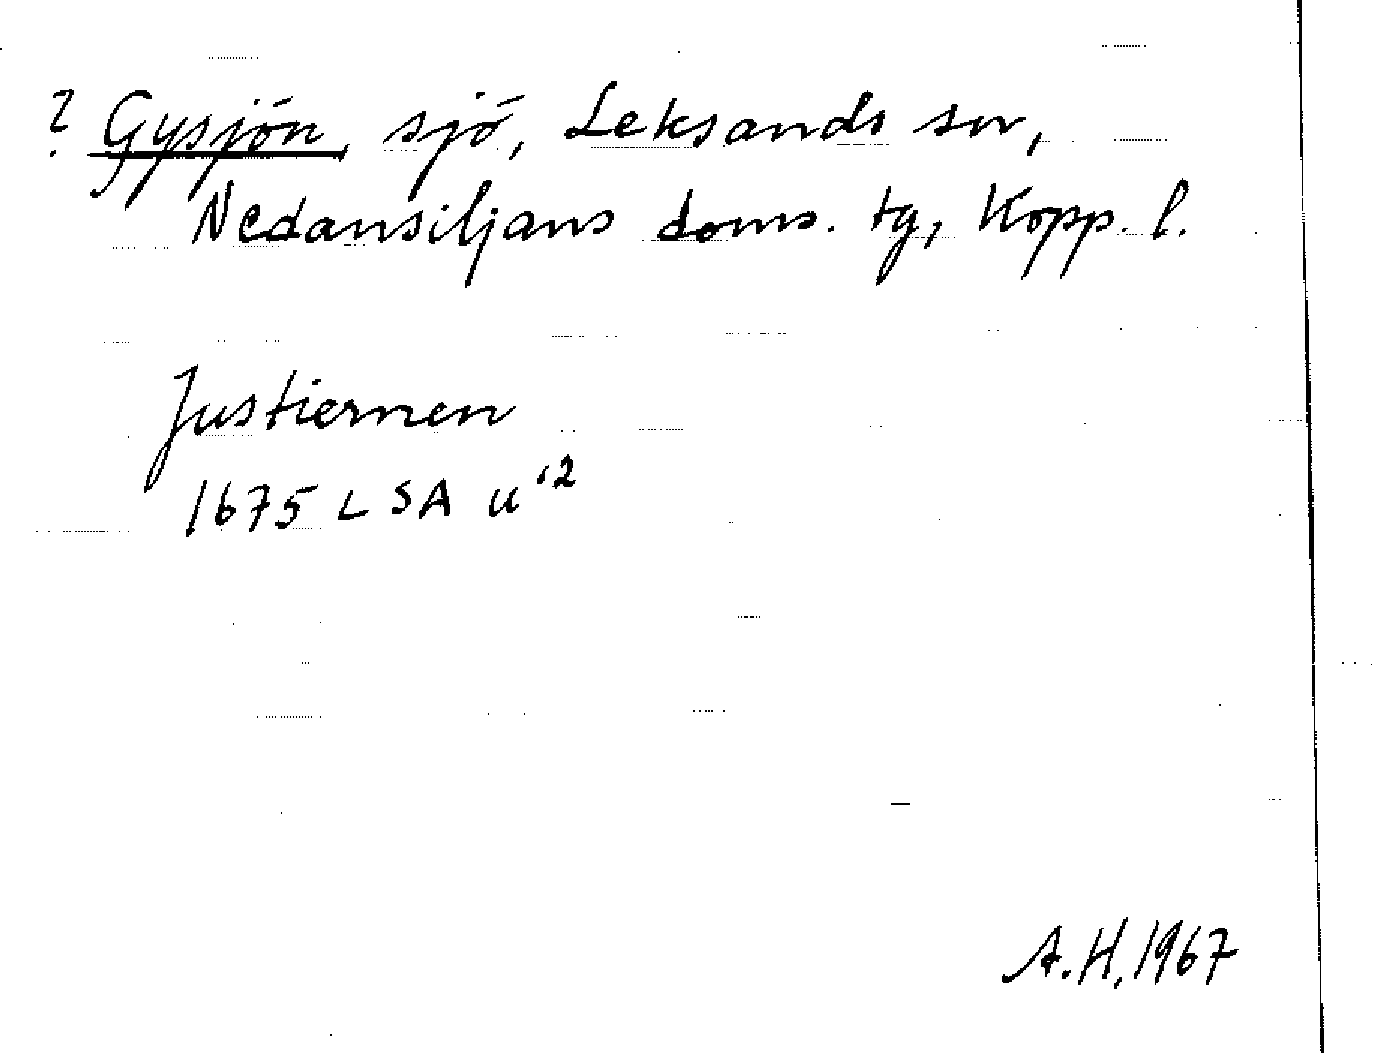 ? Gysjön, sjö, Leksands sn,
Nedansiljans doms. tg, Kopp. l.
Justiernen
1675 LSA u '2
A.H, 1967